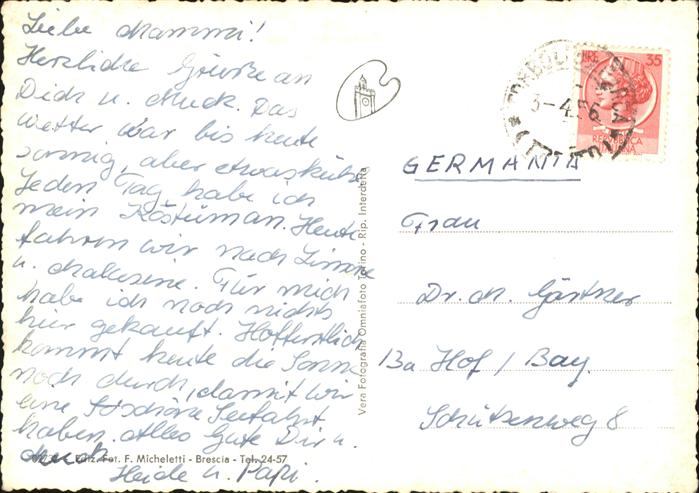 Liebe Mammi!
Herzliche Grüße an
Dich u. Muck. Das
Wetter war bis heute
sonnig, aber etwas kühl.
Jeden Tag habe ich
mein Kostüm an. Heute
fahren wir nach Limone
u. Malcesine. Für mich
habe ich noch nichts
hier gekauft. Hoffentlich
kommt heute die Sonne
noch durch, damit wir
eine schöne Seefahrt
haben. Alles Gute Dir u.
Muck
Heide u. Papi.
Ediz. Fot. F. Micheletti - Brescia - Tel. 24-57
Vera Fotografia Omniafoto Torino - Rip. Interdetta
LIRE 35
REPUBBLICA ITALIANA
3-4.56
GERMANIA
Frau
Dr. M. Gärtner
13a Hof / Bay.
Schützenweg 8